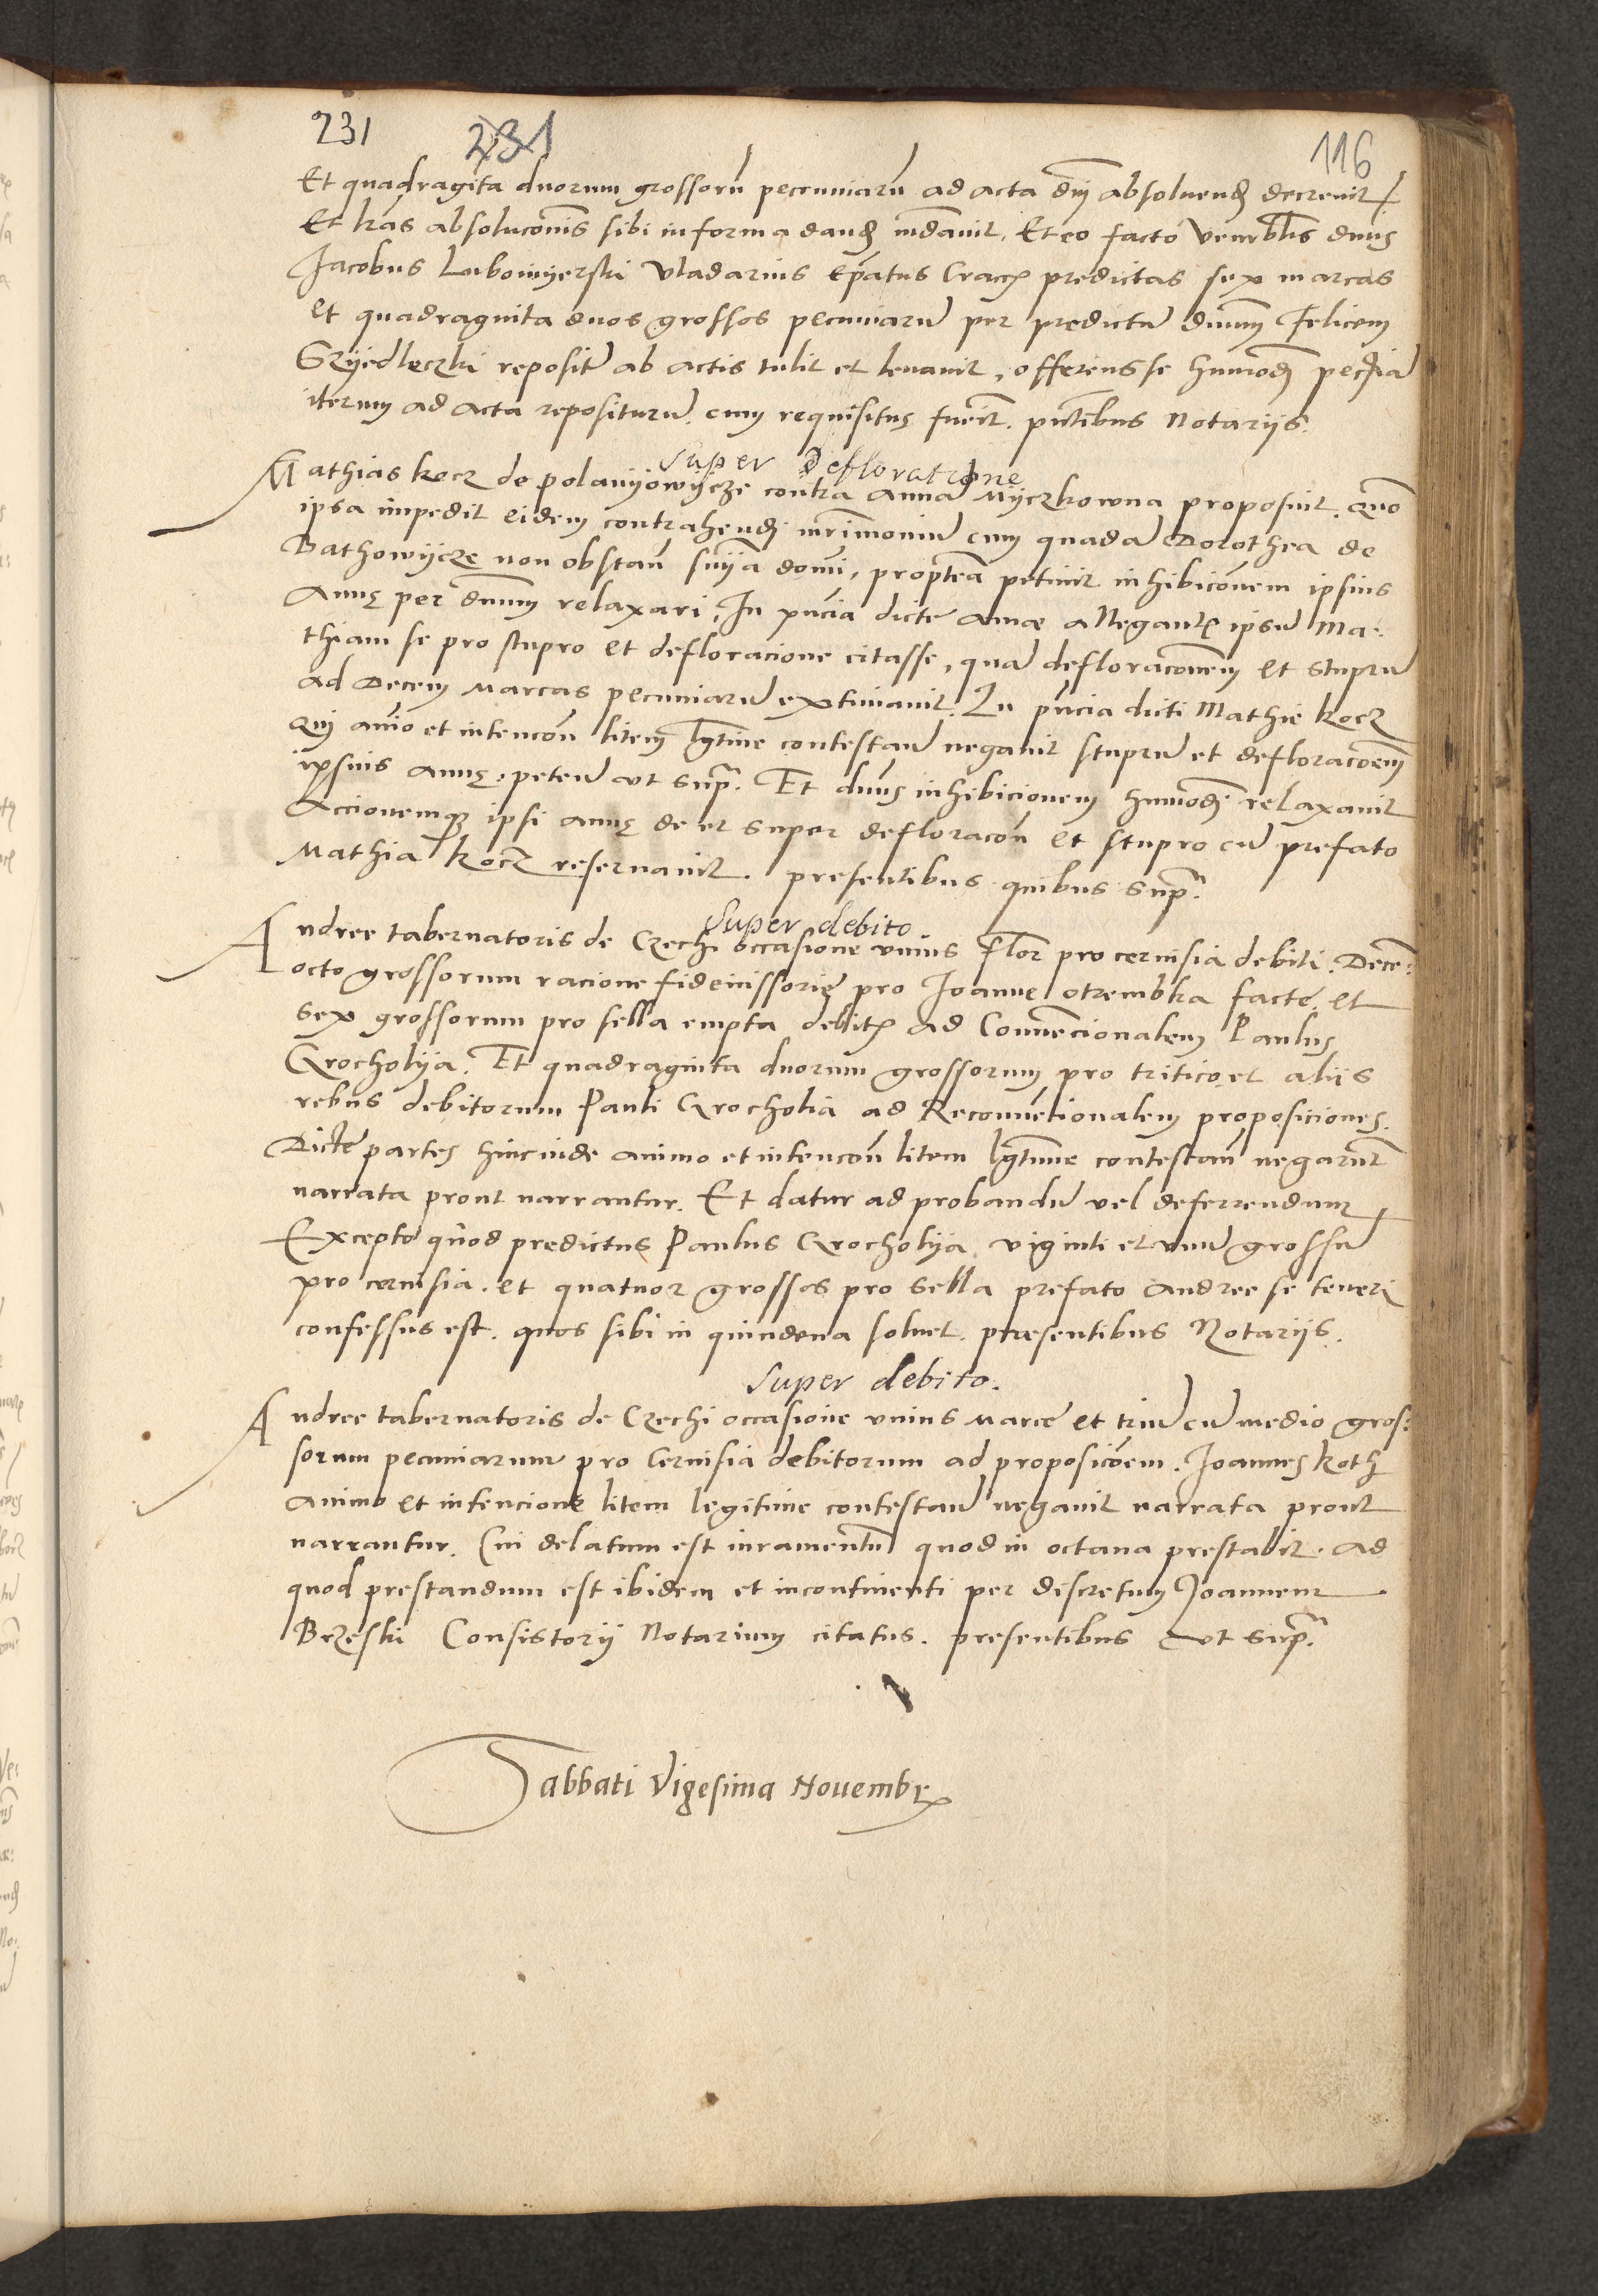 231 231 116
Et quadragīta duorum grossorū pecuniarū ad acta dnī absoluend decreuit
Et lrās absolucōnis sibi in forma dand mdauit. Et eo facto Venerblis dnus
Jacobus Lubowyerski Vladarius Epatus Cracs predictas sex marcas
et quadraginta duos grossos pecuniarū per predictū dnum Felicem
reposit ab actis tulit et leuauit, offerens se huiusmod
iterum ad acta repositurū. cum requisitus fuerit. pntibus Notarijs.
super defloratione
Mathias kocz de polanyowycze contra Annā Myczkowna proposuit. quō
ipsa impedit eidem contrahendi mrimoniū cum quadā Dorothea de
Bathowycze non obstan domi, propterea petiuit inhibicōnem ipsius
Annę per dnum relaxari. In pncia dicte Annae allegantis ipsū Ma-
thiam se pro stupro et defloracione citasse, quā defloracōnem et stuprū
ad Decem Marcas pecuniarū extimauit. In pncia dicti Mathie kocz
qui animo et intencōn litem lgtime contestan negauit stuprū et defloracōem
ipsius Annę. peten ut supra. Et dnus inhibicionem huiusmodi relaxauit
Accionemque ipsi Annę de et super defloracōn et stupro cū prefato
Mathia kocz reseruauit. presentibus quibus supra.
super debito
Andree tabernatoris de Czechi occasione vnius flor pro ceruisia debiti. Decē:
octo grossorum racione fideiussorię pro Joanne otrembka facte, et
sex grossorum pro sella empta debit ad Conuēcionalem Paulus
Grocholya. Et quadraginta duorum grossorum pro tritico et alijs
rebus debitorum Pauli Grocholia ad Reconuētionalem proposiciones.
Dicte partes hincinde animo et intencōn litem lgtime contestan negarūt
narrata prout narrantur. Et datur ad probandū vel deferrendum
Excepto quod predictus Paulus Grocholya viginti et vnū grossū
pro ceruisia. et quatuor grossos pro sella prefato Andree se teneri
confessus est. quos sibi in quindena soluet. presentibus Notarijs.
super debito.
Andree tabernatoris de Czechi occasione vnius Marce et triū cū medio gros:
sorum pecuniarum pro Ceruisia debitorum ad proposicōem. Joannes koth
Animo et intencione litem legitime contestan negauit narrata prout
narrantur. Cui delatum est iuramentū quod in octaua prestabit. Ad
quod prestandum est ibidem et incontinenti per discretum Joannem
Brzeski Consistorij Notarium citatus. presentibus vt supra.
Sabbati Vigesima Nouembr